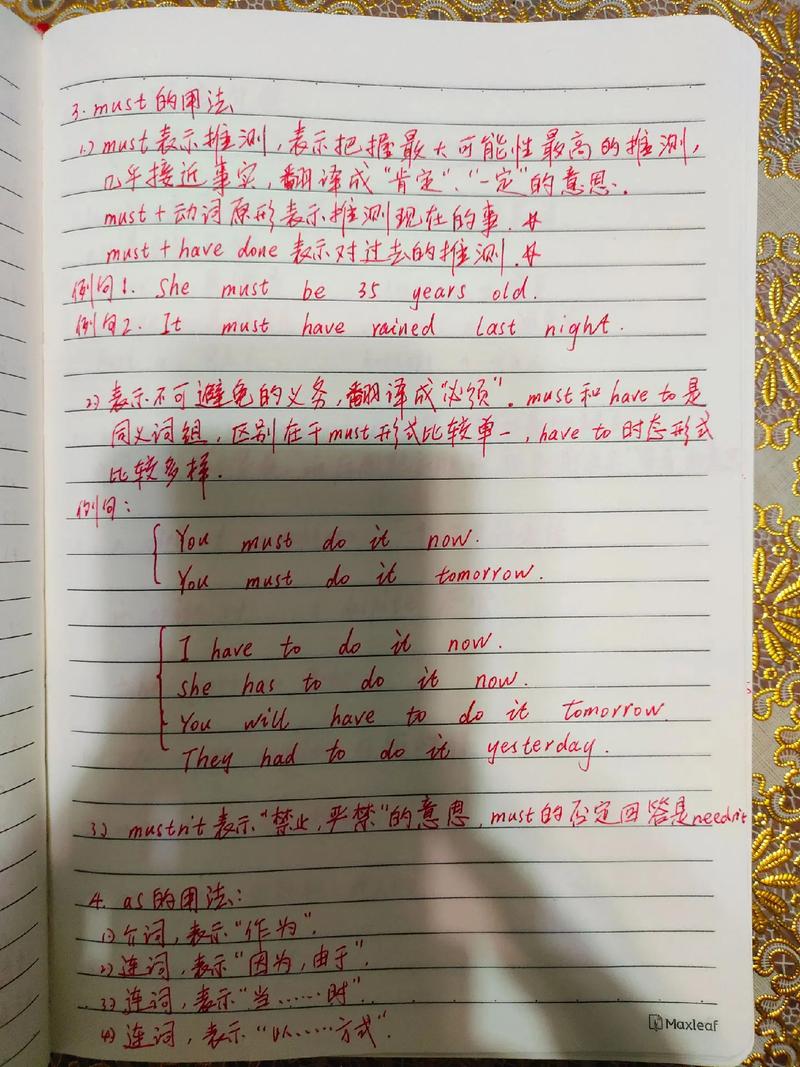 3. must的用法
1) must表示推测，表示把握最大可能性最高的推测，
几乎接近事实，翻译成“肯定”、“一定”的意思.
must+动词原形表示推测现在的事.
must+have done 表示对过去的推测.
例句1. She must be 35 years old.
例句2. It must have rained last night.
2) 表示不可避免的义务，翻译成“必须”. must和have to是
同义词组，区别在于must形式比较单一，have to时态形式
比较多样.
例句：
You must do it now.
You must do it tomorrow.
I have to do it now.
she has to do it now.
You will have to do it tomorrow.
They had to do it yesterday.
3) mustn't表示“禁止，严禁”的意思，must的否定回答是needn't
4. as的用法：
1) 介词，表示“作为”.
2) 连词，表示“因为，由于”.
3) 连词，表示“当……时”.
4) 连词，表示“以……方式”.
Maxleaf